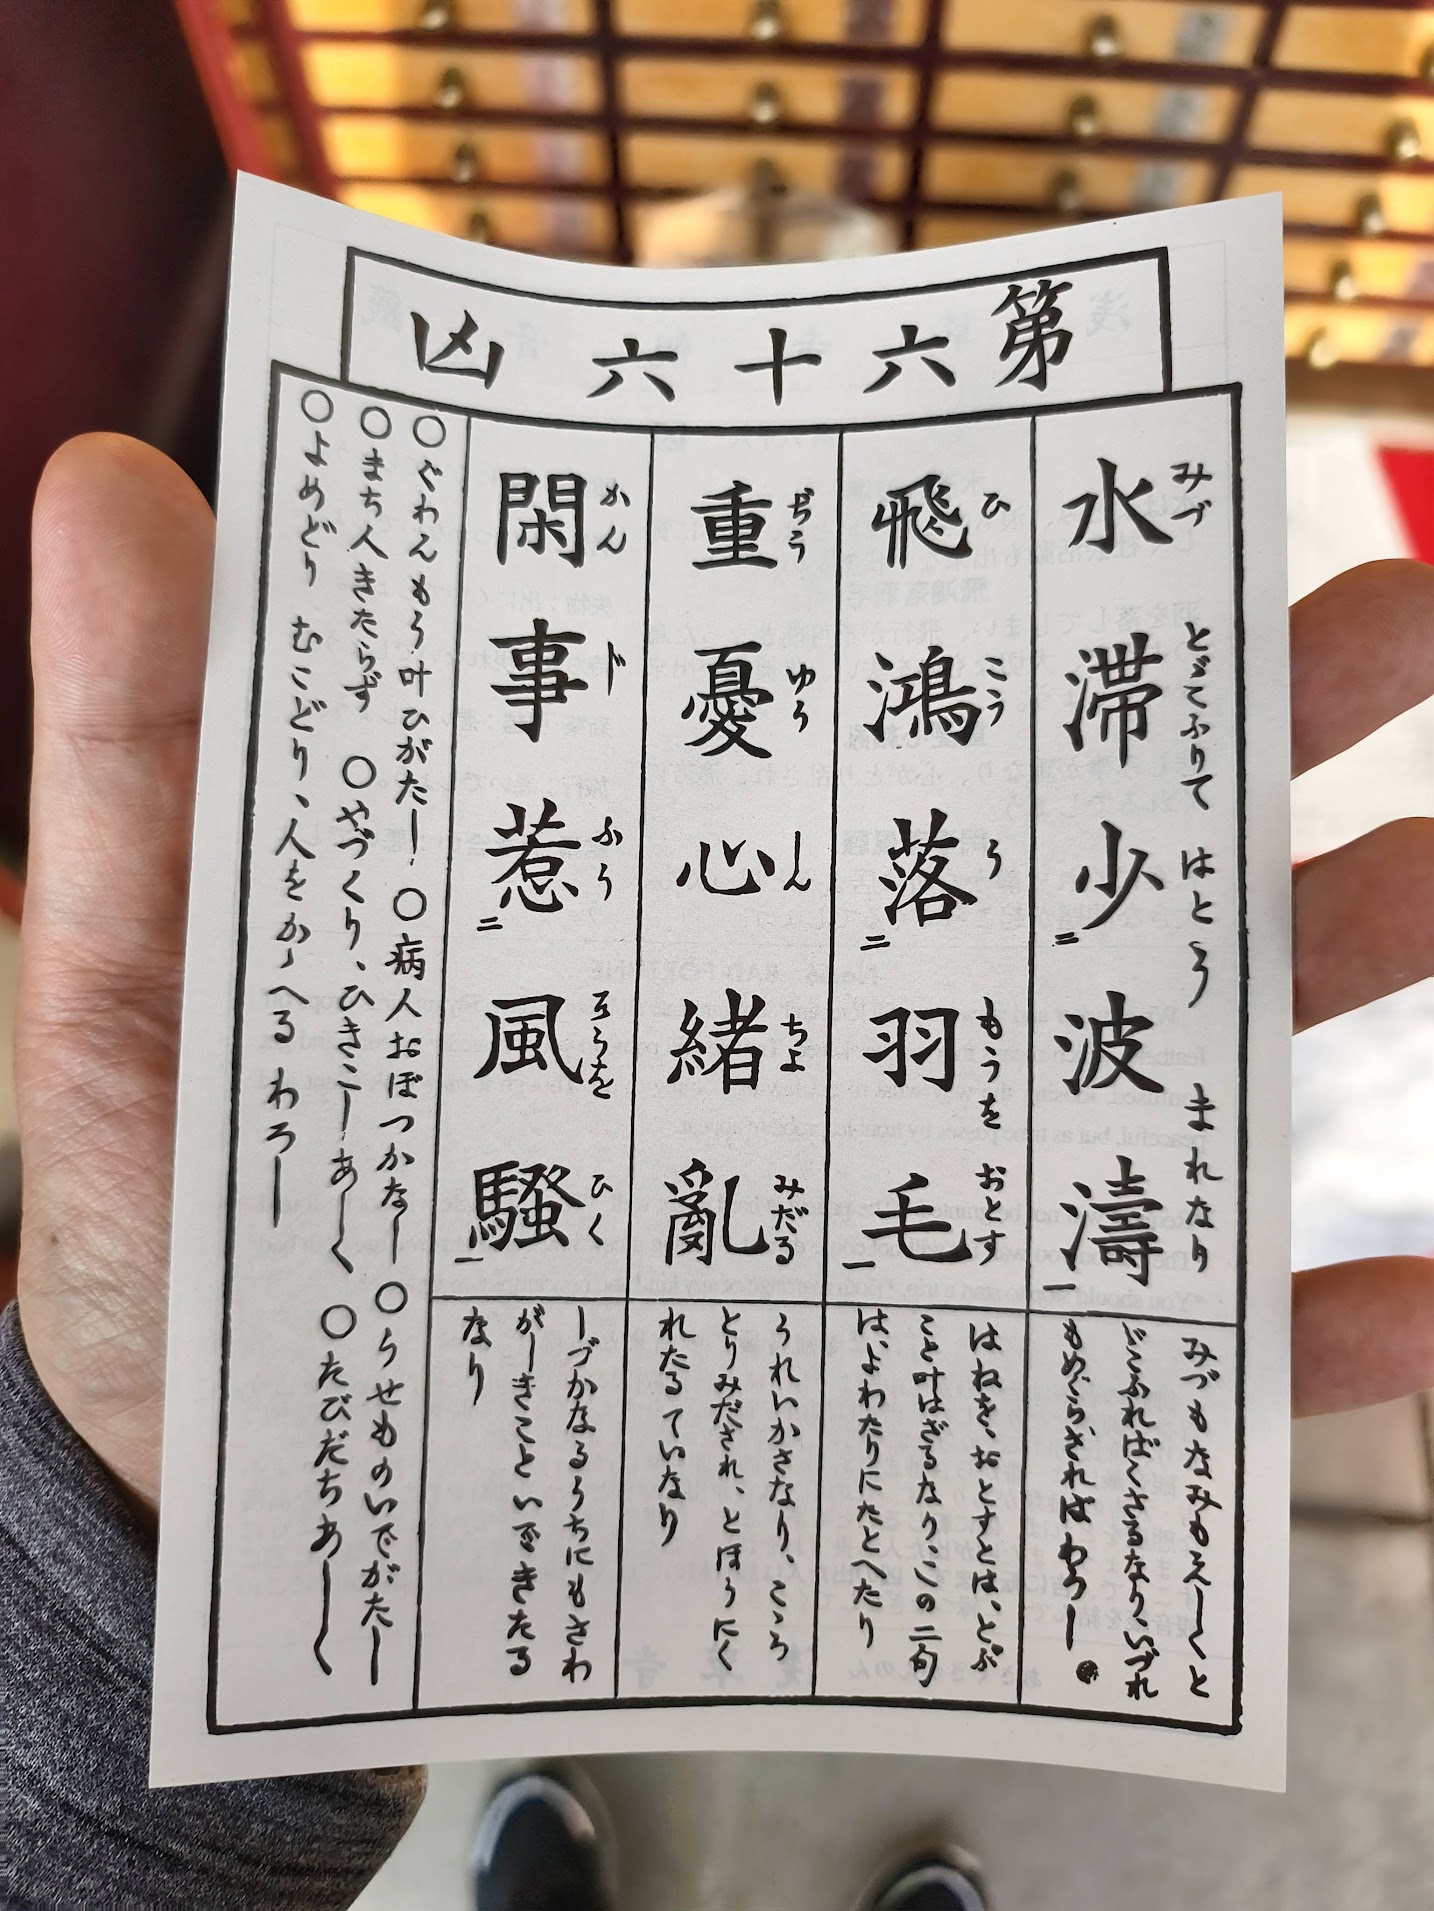 第六十六凶
水滞少二波濤一
みづ とゞこふりて はとう まれなり
みづもなみもえしくと
どこふればくさるなり、いづれ
もめぐらざればわろし
飛鴻落二羽毛一
ひ こう う もうを おとす
はねをおとすとは、とぶ
こと叶はざるなり、この二句
は、よわたりにたとへたり
重憂心緒亂
ぢう ゆう しん ちよ みだる
うれいかさなり、こゝろ
とりみだされ、とほうにく
れたるていなり
閑事惹二風騒一
かん じ ふう ひく
しづかなるうちにもさわ
がしきこといできたる
なり
○ぐわんもう叶ひがたし ○病人おぼつかなし ○うせものいでがたし
○まち人きたらず ○やづくり、ひきこしあしく ○たびだちあしく
○よめどり むこどり、人をかゝへる わろし